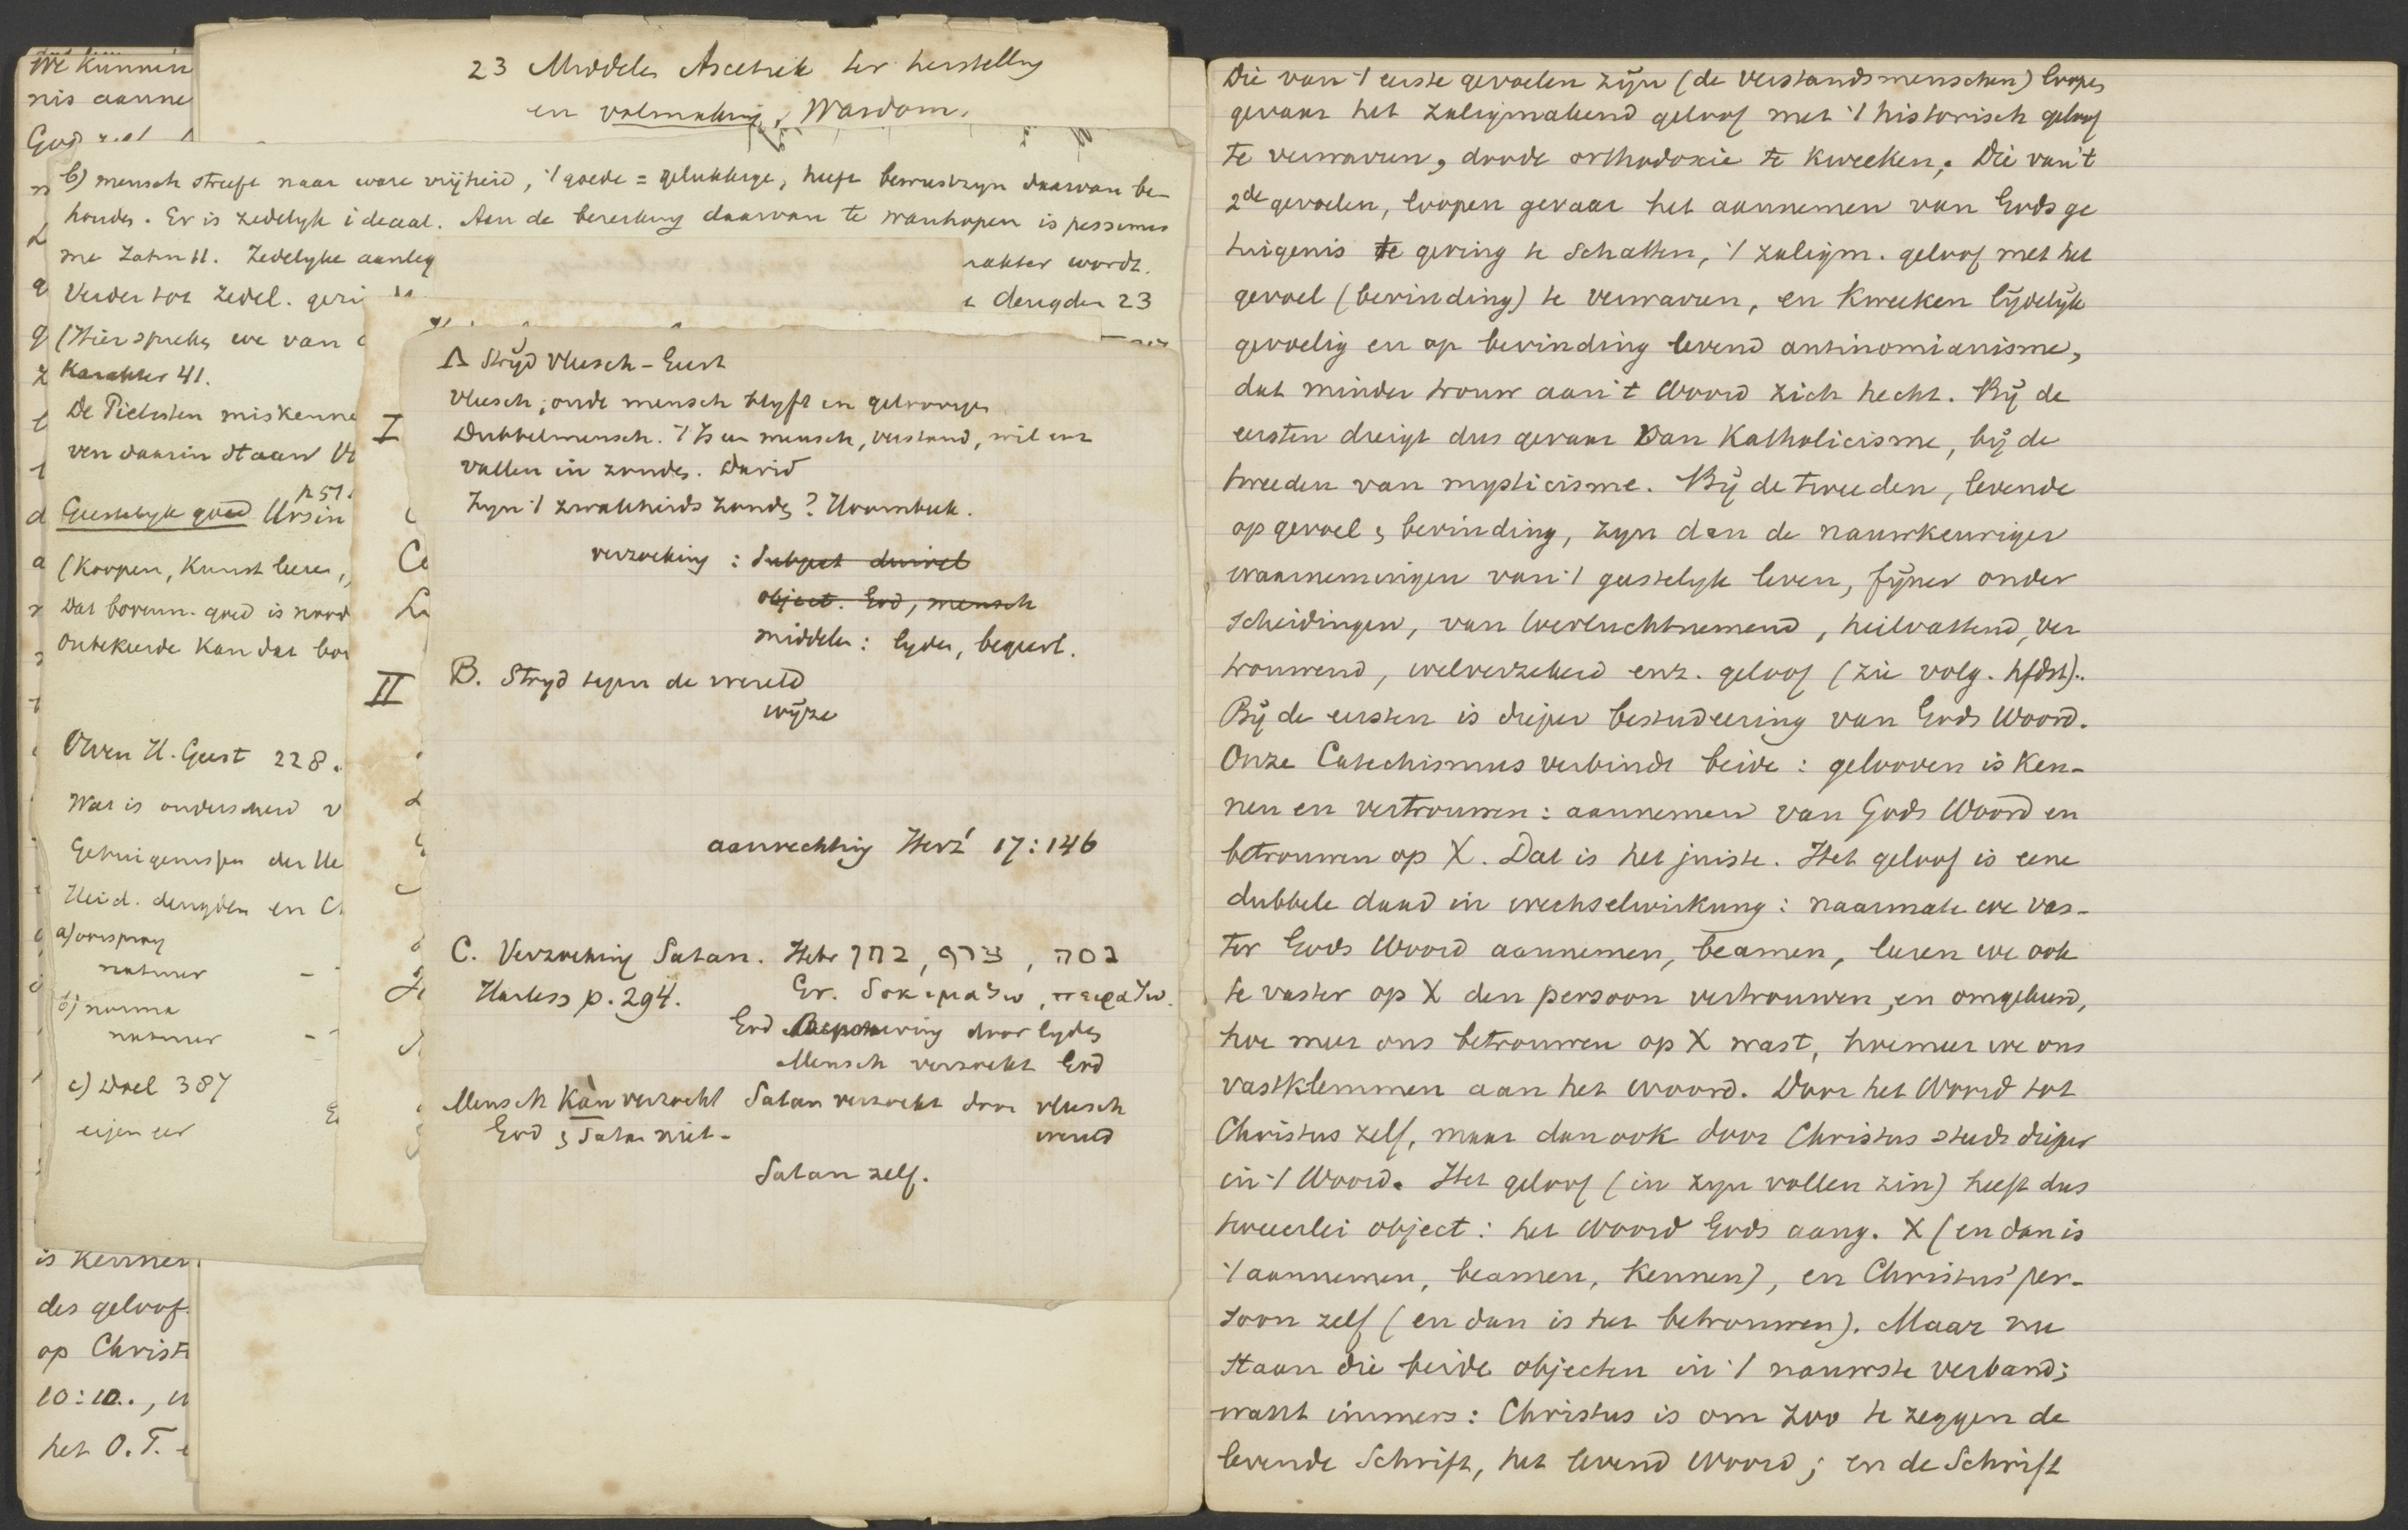 We kunnen
nis aanne
God
23 Middelen Ascetiek ter herstelling
en volmaking. Wasdom.
b) mensch streeft naar ware vrijheid, 't goede = gelukkige, heeft bewustzyn daarvan be-
houden. Er is zedelyk ideaal. Aan de bereiking daarvan te wanhopen is pessimis
me Zahn 11. Zedelyke aanleg
rakter wordt.
Verder tot zedel.
deugden 23
(Hier spreken we van
Karakter 41.
De Pietisten miskenne
ven daarin staan
p 51.
Geestelyk goed Ursin
(Koopen, Kunst leeren,
Dat bovenn. goed is nood
Onbekeerde Kan dat bov
Over H. Geest 228.
Wat is onderscheid v
Getuigenissen der
Heid. deugden en C
a) oorsprong
natuur –
b) norma
natuur –
c) Doel 387
eigen eer
is kennen
des geloof
op Christ
10:10.,
het O.T.
A Stryd Vleesch – Geest
Vleesch, oude mensch blyft in geloovigen
I Dubbelmensch. 't Is een mensch, verstand, wil enz
vallen in zonden. David
Zyn 't zwakheids zonden? Hoornbeek.
verzoeking : Subject duivel
object. God, mensch
middelen: lyden, begeerl.
II B. Stryd tegen de wereld
wyze
aanvechting Herz' 17:146
C. Verzoeking Satan. Hebr בחן, צרף, נסה
Harless p. 294. Gr. δοκιμαζω, πειραζω.
God beproeving door lyden
Mensch verzoekt God
Mensch Kàn verzocht Satan verzoekt door vleesch
God & Satan niet – wereld
Satan zelf.
Die van 't eerste gevoelen zijn (de verstandsmenschen) loopen
gevaar het zaligmakend geloof met 't historisch geloof
te verwarren, doode orthodoxie te kweeken. Die van 't
2de gevoelen, loopen gevaar het aannemen van Gods ge
tuigenis te gering te schatten, 't zaligm. geloof met het
gevoel (bevinding) te verwarren, en kweeken lijdelijk
gevoelig en op bevinding levend antinomianisme,
dat minder trouw aan 't Woord zich hecht. Bij de
eersten dreigt dus gevaar van Katholicisme, bij de
tweeden van mysticisme. Bij de tweeden, levende
op gevoel & bevinding, zyn dan de nauwkeuriger
waarnemingen van 't geestelyk leven, fijner onder
scheidingen, van toevluchtnemend, heilvattend, ver
trouwend, welverzekerd enz. geloof (zie volg. hfdst)..
Bij de eersten is dieper bestudeering van Gods Woord.
Onze Catechismus verbindt beide : gelooven is Ken-
nen en vertrouwen : aannemen van Gods Woord en
betrouwen op X. Dat is het juiste. Het geloof is eene
dubbele daad in wechselwirkung : naarmate we vas-
ter Gods Woord aannemen, beamen, leeren we ook
te vaster op X den persoon vertrouwen, en omgekeerd,
hoe meer ons betrouwen op X wast, hoemeer we ons
vastklemmen aan het woord. Door het Woord tot
Christus zelf, maar dan ook door Christus steeds dieper
in 't Woord. Het geloof (in zyn vollen zin) heeft dus
tweeerlei object : het Woord Gods aang. X (en dan is
't aannemen, beamen, kennen), en Christus' per-
soon zelf (en dan is het betrouwen). Maar nu
staan die beide objecten in 't nauwste verband;
want immers : Christus is om zoo te zeggen de
levende Schrift, het levend Woord; en de Schrift